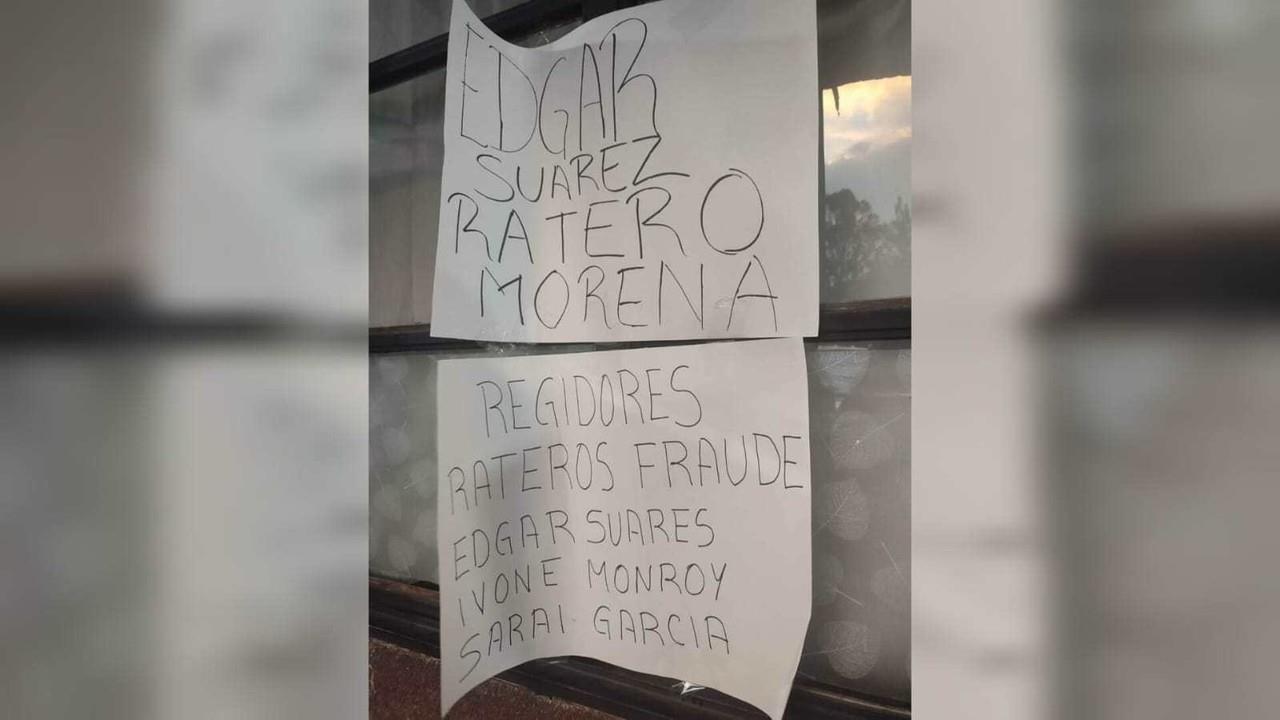 EDGAR
SUAREZ
RATERO
MORENA
REGIDORES
RATEROS FRAUDE
EDGAR SUARES
IVONE MONROY
SARAI GARCIA